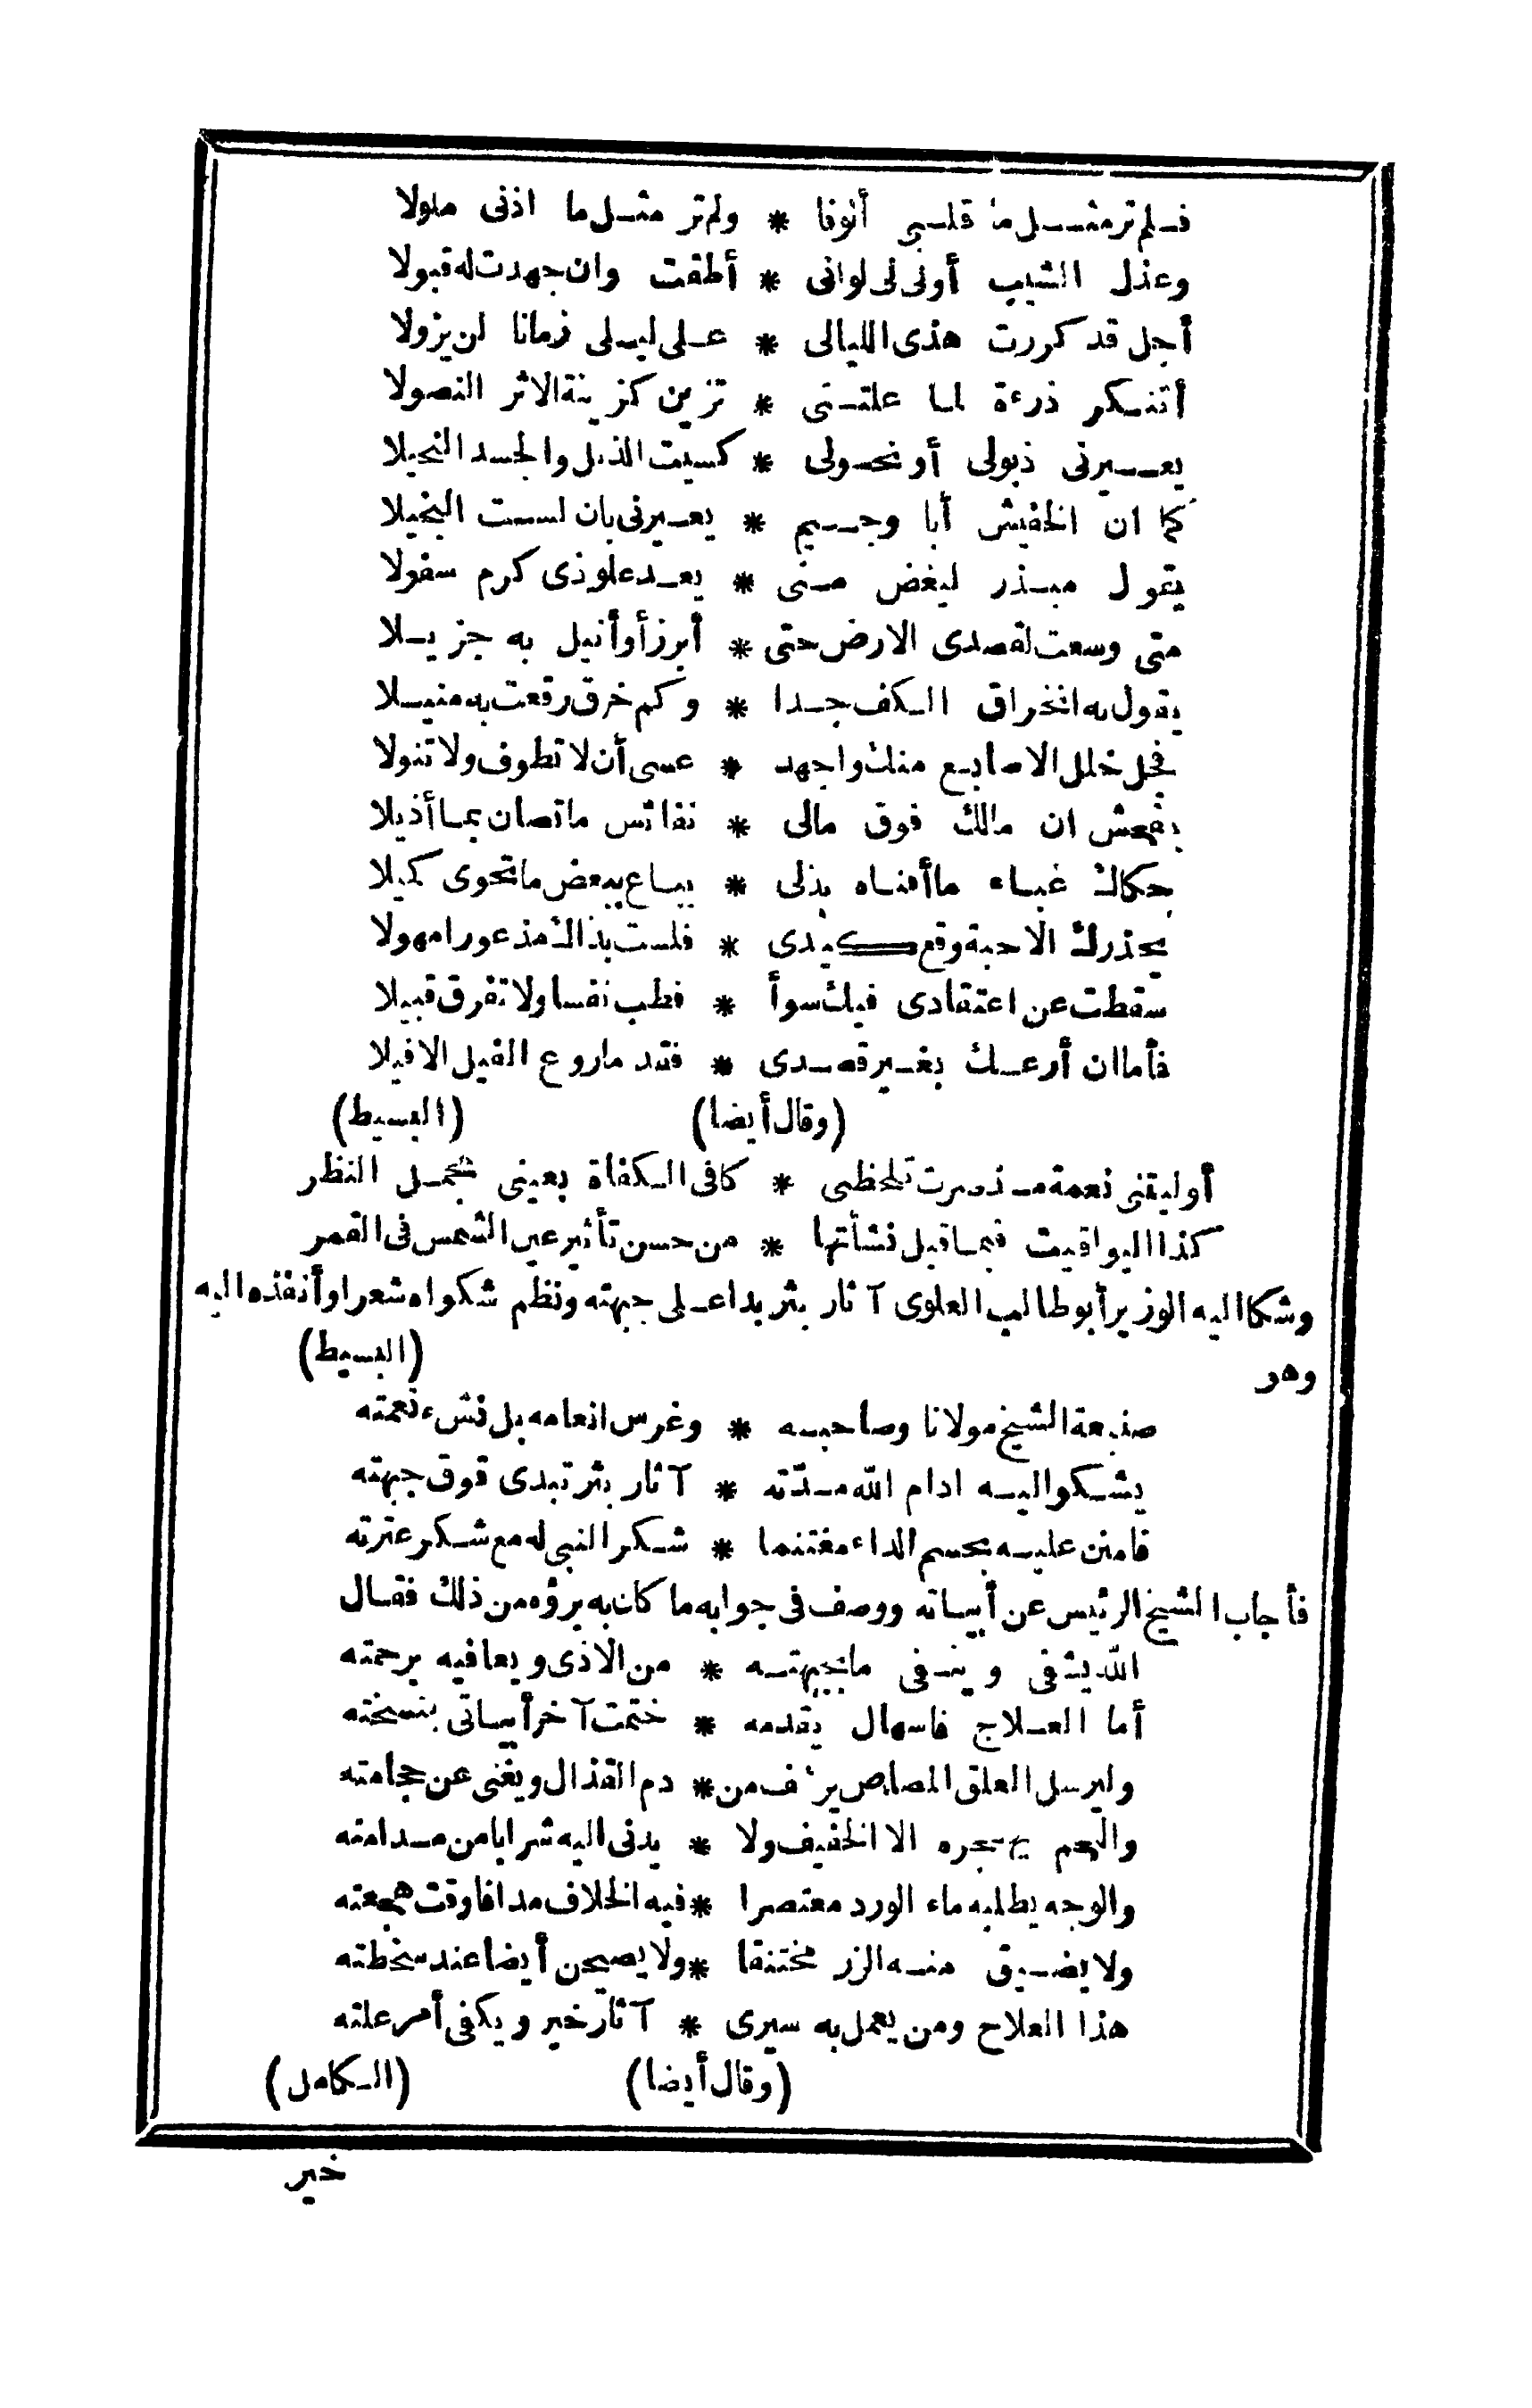 فلم تر مثل ما قلبى أنوفا * ولم تر مثل ما اذنى ملولا
وعذل الشيب أولى لى لوانى * أطقت وان جهدت له قبولا
أجل قد كررت هذى الليالى * على ليلى زمانا لن يزولا
أتنكر ذرءة لما علتنى * تزين كزينة الاثر النصولا
يعيرنى ذبولى أو نحولى * كسيت الذبل والجسد النحيلا
كما ان الخفيش أبا وجيم * يعيرنى بان لست البخيلا
يقول مبذر ليغض منى * يعد علو ذى كرم سفولا
متى وسعت لقصدى الارض حتى * أبرز أو أنيل به جزيلا
يقول به انخراق الكف جدا * وكم خرق رقعت به منيلا
فخل خلل الاصابع منك واجهد * عسى أن لا تطوف ولا تنولا
يفحش ان مالك فوق مالى * نفائس ما تصان بما أذيلا
حكاك غباء ما أفناه بذلى * يباع ببعض ما تحوى كميلا
يحذرك الاحبة وقع كيدى * فلست بذاك مذعورا مهولا
سقطت عن اعتقادى فيك سوأ * فطب نفسا ولا تفرق قبيلا
فأما ان أرعك بغير قصدى * فقد ما روع الفيل الافيلا
(وقال أيضا) (البسيط)
أوليتنى نعمة مذ صرت تلحظنى * كافى الكفاة بعينى مجمل النظر
كذا اليواقيت فيما قيل نشأتها * من حسن تأثير عين الشمس فى القمر
وشكا اليه الوزير أبو طالب العلوى آثار بثر بدا على جبهته ونظم شكواه شعرا وأنفذه اليه
وهو (البسيط)
صنيعة الشيخ مولانا وصاحبه * وغرس انعامه بل نشء نعمته
يشكو اليه ادام الله مدّته * آثار بثر تبدى فوق جبهته
فامنن عليه بحسم الداء مغتنما * شكر النبى له مع شكر عترته
فأجاب الشيخ الرئيس عن أبياته ووصف فى جوابه ما كان به برؤه من ذلك فقال
الله يشفى وينفى ما بجبهته * من الاذى ويعافيه برحمته
أما العلاج فاسهال يقدمه * ختمت آخر أبياتى بنسخته
وليرسل العلق المصاص يرشف من * دم القذال ويغنى عن حجامته
واللحم يهجره الا الخفيف ولا * يدنى اليه شرابا من مدامته
والوجه يطليه ماء الورد معتصرا * فيه الخلاف مدافا وقت هجعته
ولا يضيق منه الزر مختنقا * ولا يصيحن أيضا عند سخطته
هذا العلاج ومن يعمل به سيرى * آثار خير ويكفى أمر علته
(وقال أيضا) (الكامل)
خير